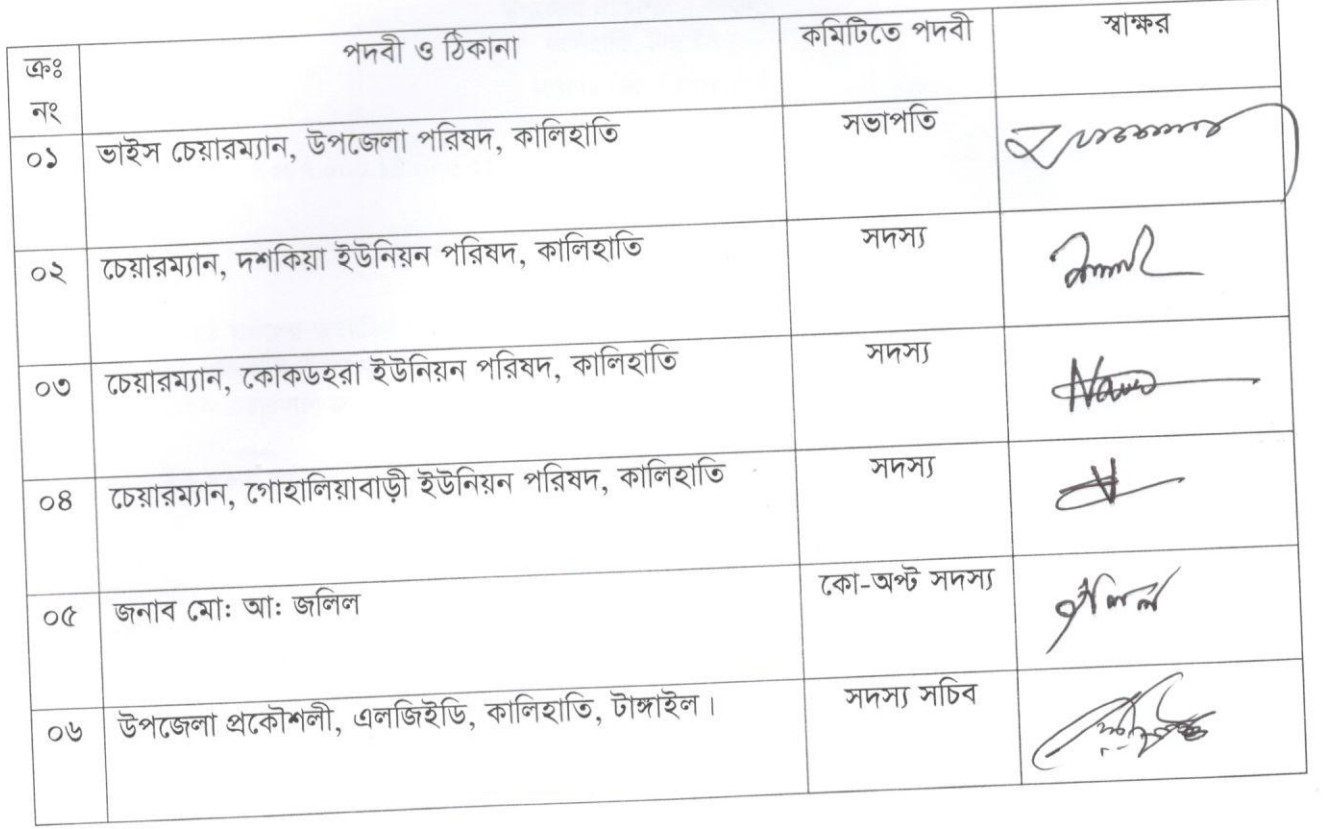 ক্রঃ নং পদবী ও ঠিকানা কমিটিতে পদবী স্বাক্ষর
০১ ভাইস চেয়ারম্যান, উপজেলা পরিষদ, কালিহাতি সভাপতি
০২ চেয়ারম্যান, দশকিয়া ইউনিয়ন পরিষদ, কালিহাতি সদস্য
০৩ চেয়ারম্যান, কোকডহরা ইউনিয়ন পরিষদ, কালিহাতি সদস্য
০৪ চেয়ারম্যান, গোহালিয়াবাড়ী ইউনিয়ন পরিষদ, কালিহাতি সদস্য
০৫ জনাব মো: আ: জলিল কো-অপ্ট সদস্য
০৬ উপজেলা প্রকৌশলী, এলজিইডি, কালিহাতি, টাঙ্গাইল। সদস্য সচিব